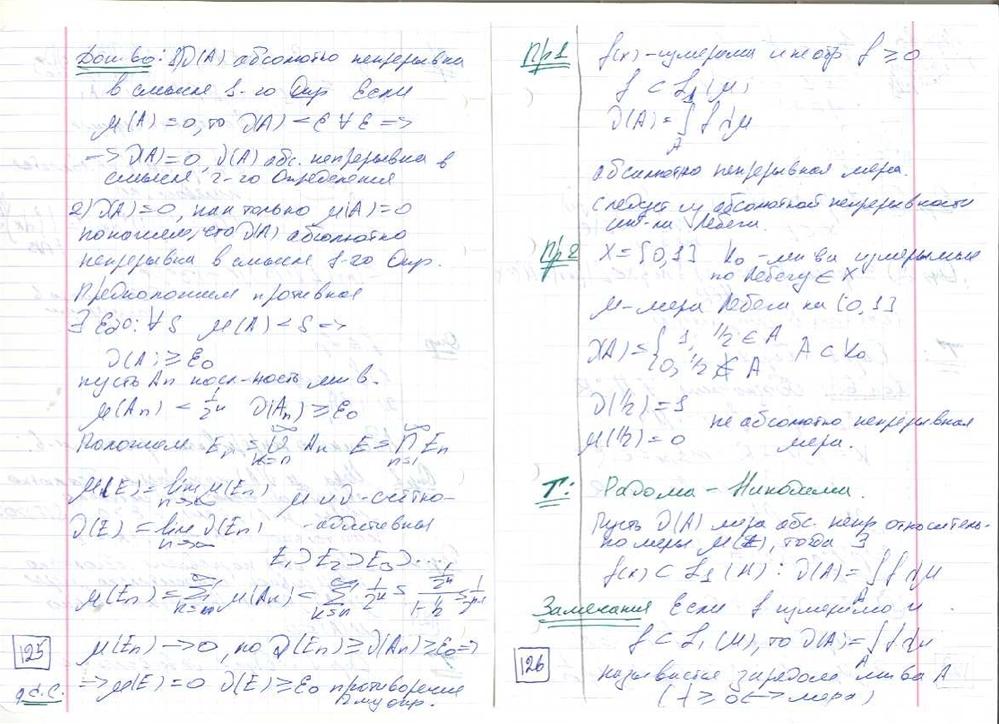 Док-во: 1) ∂(A) абсолютно непрерывна
в смысле 1-го Опр Если
μ(A) = 0, то ∂(A) < ε ∀ ε =>
-> ∂(A) = 0, ∂(A) абс. непрерывна в
смысле 2-го Определения
2) ∂(A) = 0, как только μ(A) = 0
покажем, что ∂(A) абсолютно
непрерывна в смысле 1-го Опр.
Предположим противное
∃ ε₀ > 0: ∀ δ μ(A) < δ =>
∂(A) ≥ ε₀
пусть Aₙ посл-ность мн-в.
μ(Aₙ) < 1/2ⁿ ∂(Aₙ) ≥ ε₀
Положим Eₙ = ∪ₖ₌ₙ^∞ Aₙ E = ∩ₙ₌₁^∞ Eₙ
μ(E) = lim n->∞ μ(Eₙ) μ и ∂ - счётно-
∂(E) = lim n->∞ ∂(Eₙ) - аддитивная
E₁ ⊃ E₂ ⊃ E₃ ⊃ ..
μ(Eₙ) = Σ μ(Aₙ) < Σₖ₌ₙ^∞ 1/2ⁿ ≤
μ(Eₙ) -> 0, но ∂(Eₙ) ≥ ∂(Aₙ) ≥ ε₀ =>
=> μ(E) = 0 ∂(E) ≥ ε₀ противоречие
опр.
125
Пр 1 f(x) - измерима и неотр f ≥ 0
f ⊂ L₁(μ)
∂(A) = ∫_A f dμ
абсолютно непрерывная мера.
следует из абсолютной непрерывности
инт-ла Лебега.
Пр 2 X = [0,1] K₀ - мн-ва измеримые
по Лебегу ∈ X
μ - мера Лебега на [0,1]
∂(A) = { 1, 1/2 ∈ A
0, 1/2 ∉ A A ⊂ K₀
∂(1/2) = 1
μ(1/2) = 0 не абсолютно непрерывная
мера.
Т: Радома - Никодима.
Пусть ∂(A) мера абс. непр относитель-
но меры μ, тогда ∃
f(x) ⊂ L₁(μ) : ∂(A) = ∫_A f dμ
Замечания Если f измеримо и
f ⊂ L₁(μ), то ∂(A) = ∫_A f dμ
называется зарядом мн-ва A
(f ≥ 0 <-> мера)
126